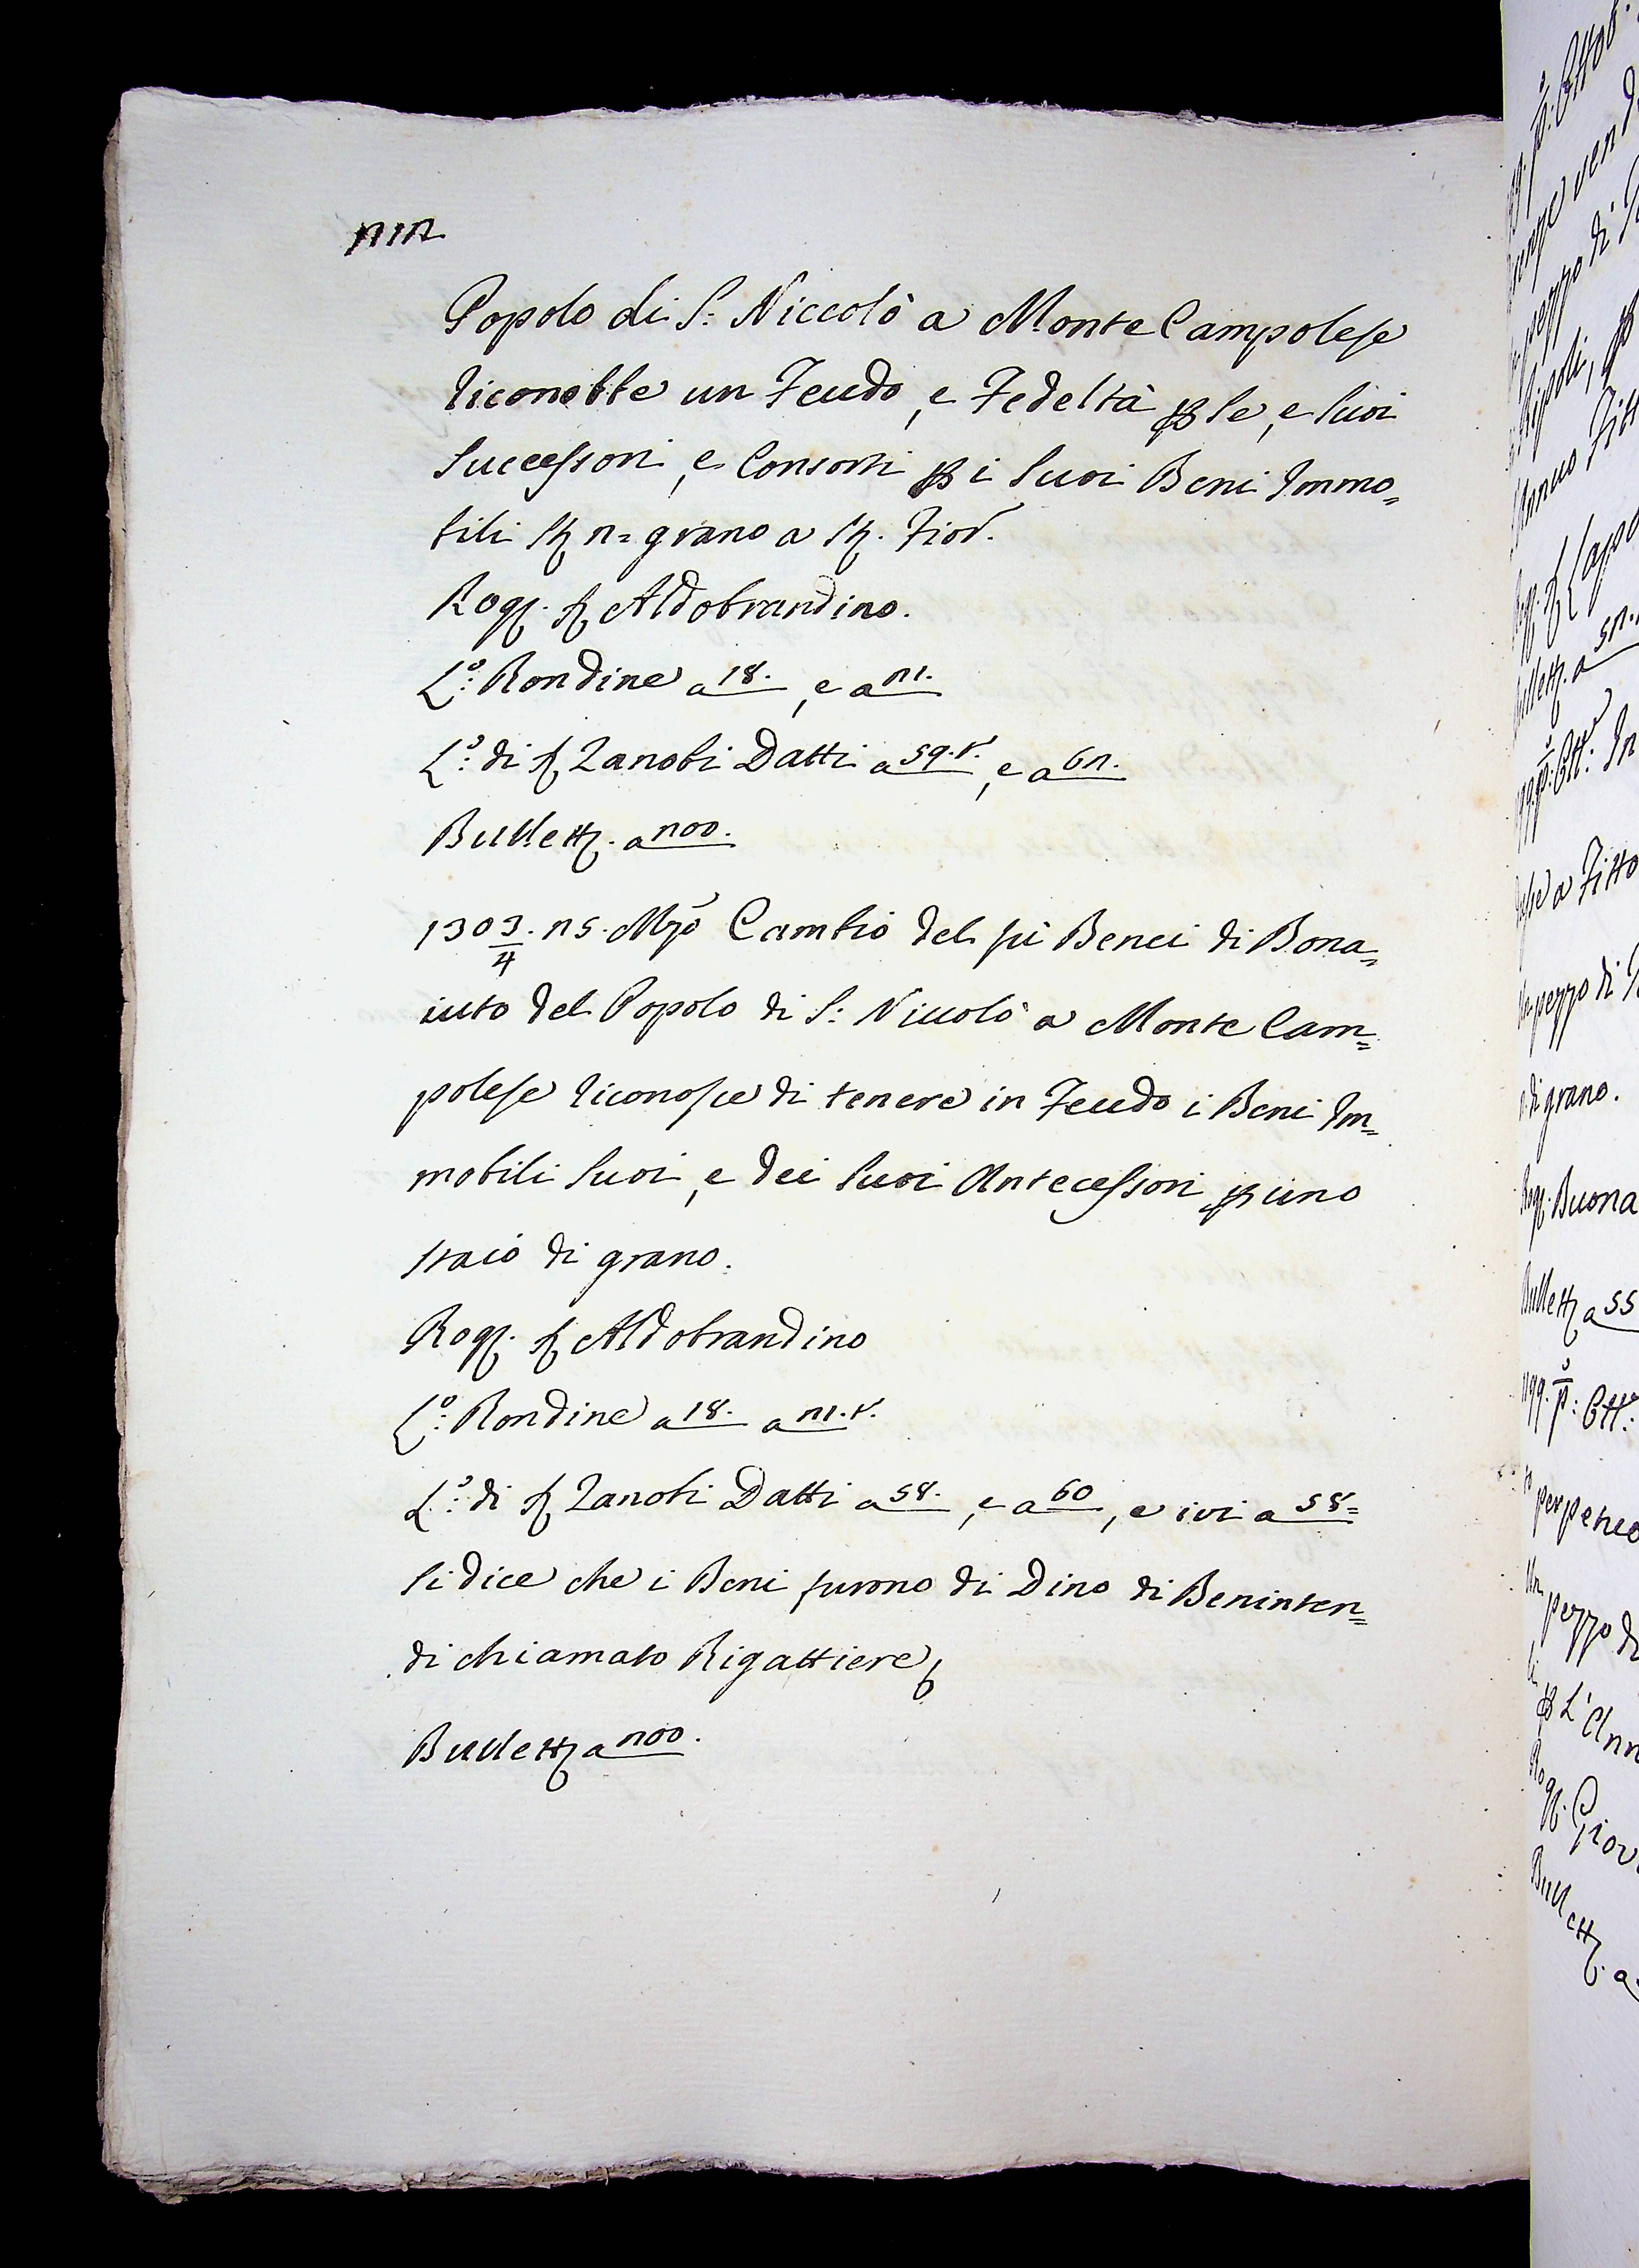 212
Popolo di S: Niccolò a Monte Campolese
riconobbe un Feudo, e Fedeltà p Se, e Suoi
Successori, e Consorti p i Suoi Beni Immo=
bili St 2= grano a St. Fior.
Rog. S Aldobrandino.
L:º Rondine a 18., e a 21.
L:º di S Zanobi Datti a 59.t., e a 62.
Bullett. a 200.
1303/4. 25. Mzo Cambio del fù Benci di Bona=
iuto del Popolo di S: Niccolò a Monte Cam=
polese riconosce di tenere in Feudo i Beni Im=
mobili Suoi, e dei Suoi Antecessori p uno
staio di grano.
Rog. S Aldobrandino
L:º Rondine a 18. a 21.t.
L:º di S Zanobi Datti a 58., e a 60, e ivi a 58=
Si dice che i Beni furono di Dino di Beninten=
di chiamato Rigattiere
Bullett a 200.